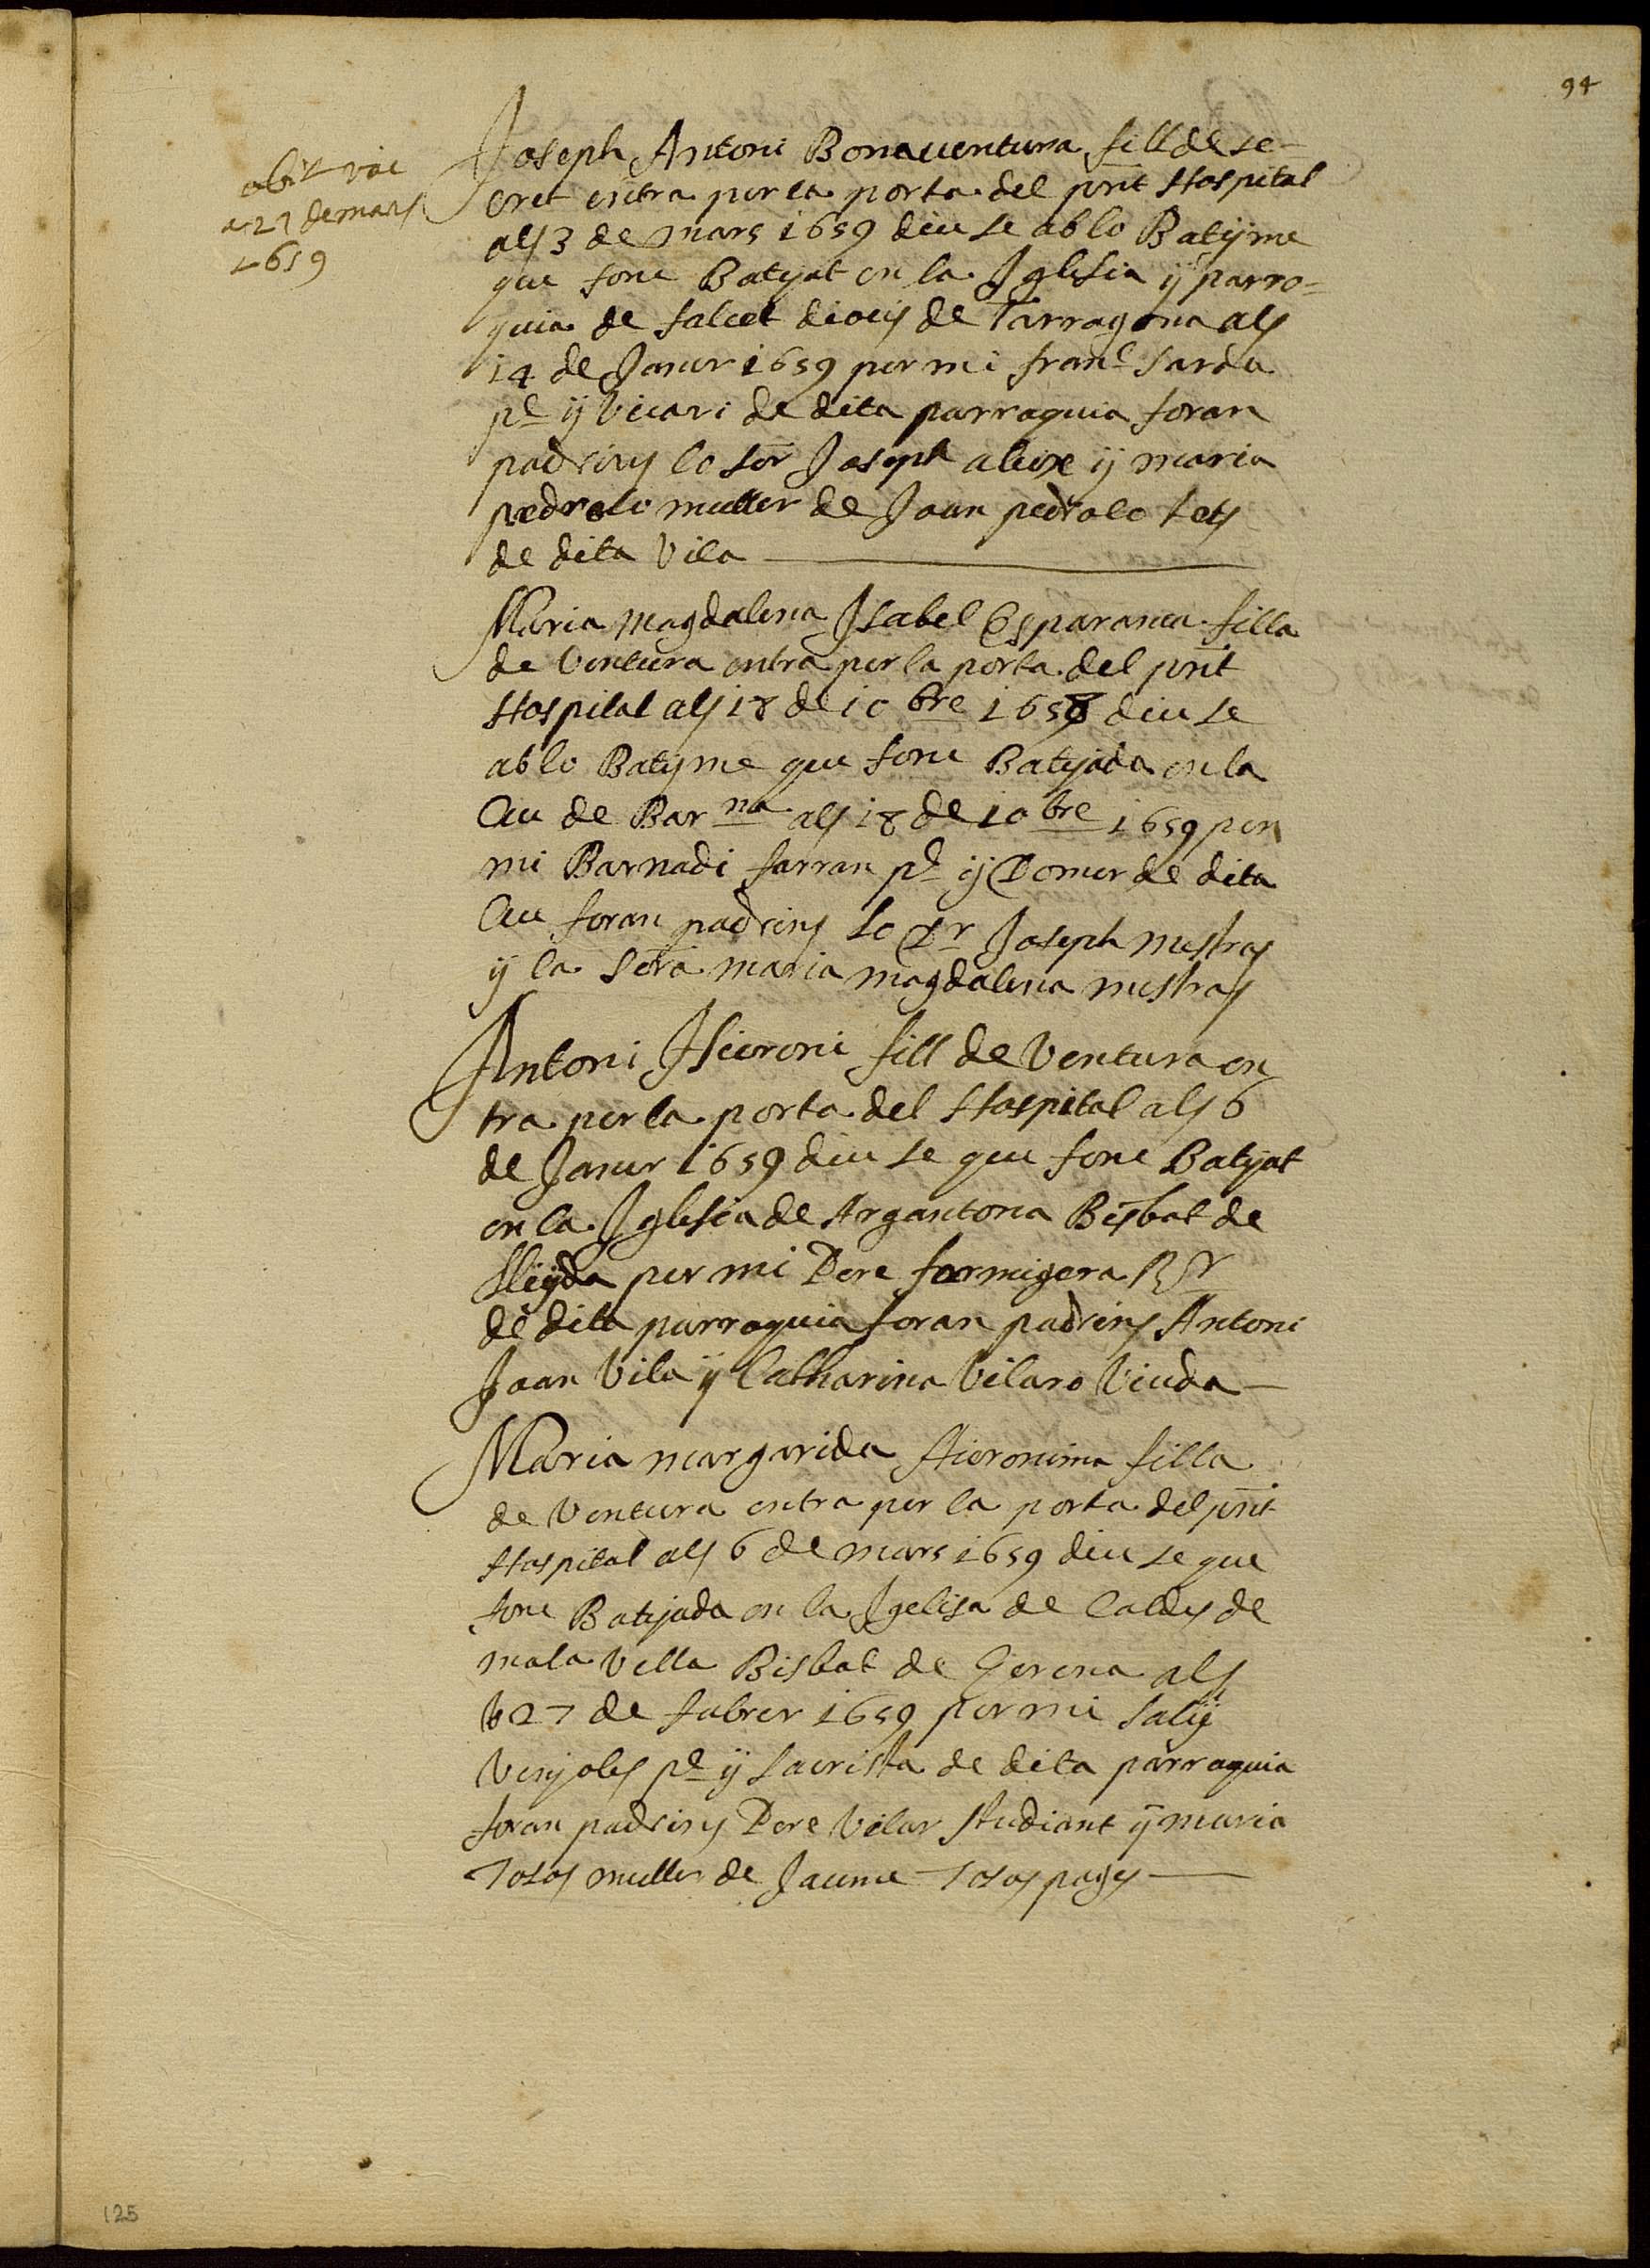 94
obit vie
a 27 de mars
1659
Joseph Antoni Bonaventura fill de se=
cret entra per la porta del pnt Hospital
als 3 de mars 1659 diu se ab lo Batisme
que fonc Batijat en la Iglesia ÿ parro=
quia de falcet diocis de Tarragona als
14 de Janer 1659 per mi Franc Sarda
pe ÿ vicari de dita parraquia foran
padrins lo sor Joseph aleix ÿ maria
pedrolo muller de Joan pedrolo tots
de dita vila
Maria Magdalena Isabel Esparansa filla
de Ventura entra per la porta del pnt
Hospital als 18 de 10 bre 1658 diu se
ab lo Batisme que fonc Batejada en la
Ceu de Bar na als 18 de 10 bre 1659 per
mi Barnadi farran pe ÿ Domer de dita
Ceu foran padrins lo Dr Joseph mestras
ÿ la Sora maria magdalena mestras
Antoni Hieroni fill de Ventura en
tra per la porta del Hospital als 6
de Janer 1659 diu se que fonc Batijat
en la Iglesia de Argantona Bisbat de
Lleÿda per mi Pere formigera Rr
de dita parraquia foran padrins Antoni
Joan Vila ÿ Catharina Vilaro Viuda
Maria margarida Hieronima filla
de Ventura entra per la porta del pnt
Hospital als 6 de mars 1659 diu se que
fonc Batejada en la Igelisa de Caldes de
mala vella Bisbat de Gerona als
27 de fabrer 1659 per mi Saluÿ
Vinyoles pe ÿ sacrista de dita parraquia
foran padrins Pere Vilar studiant ÿ maria
Tosas muller de Jaume Tosas pages
125